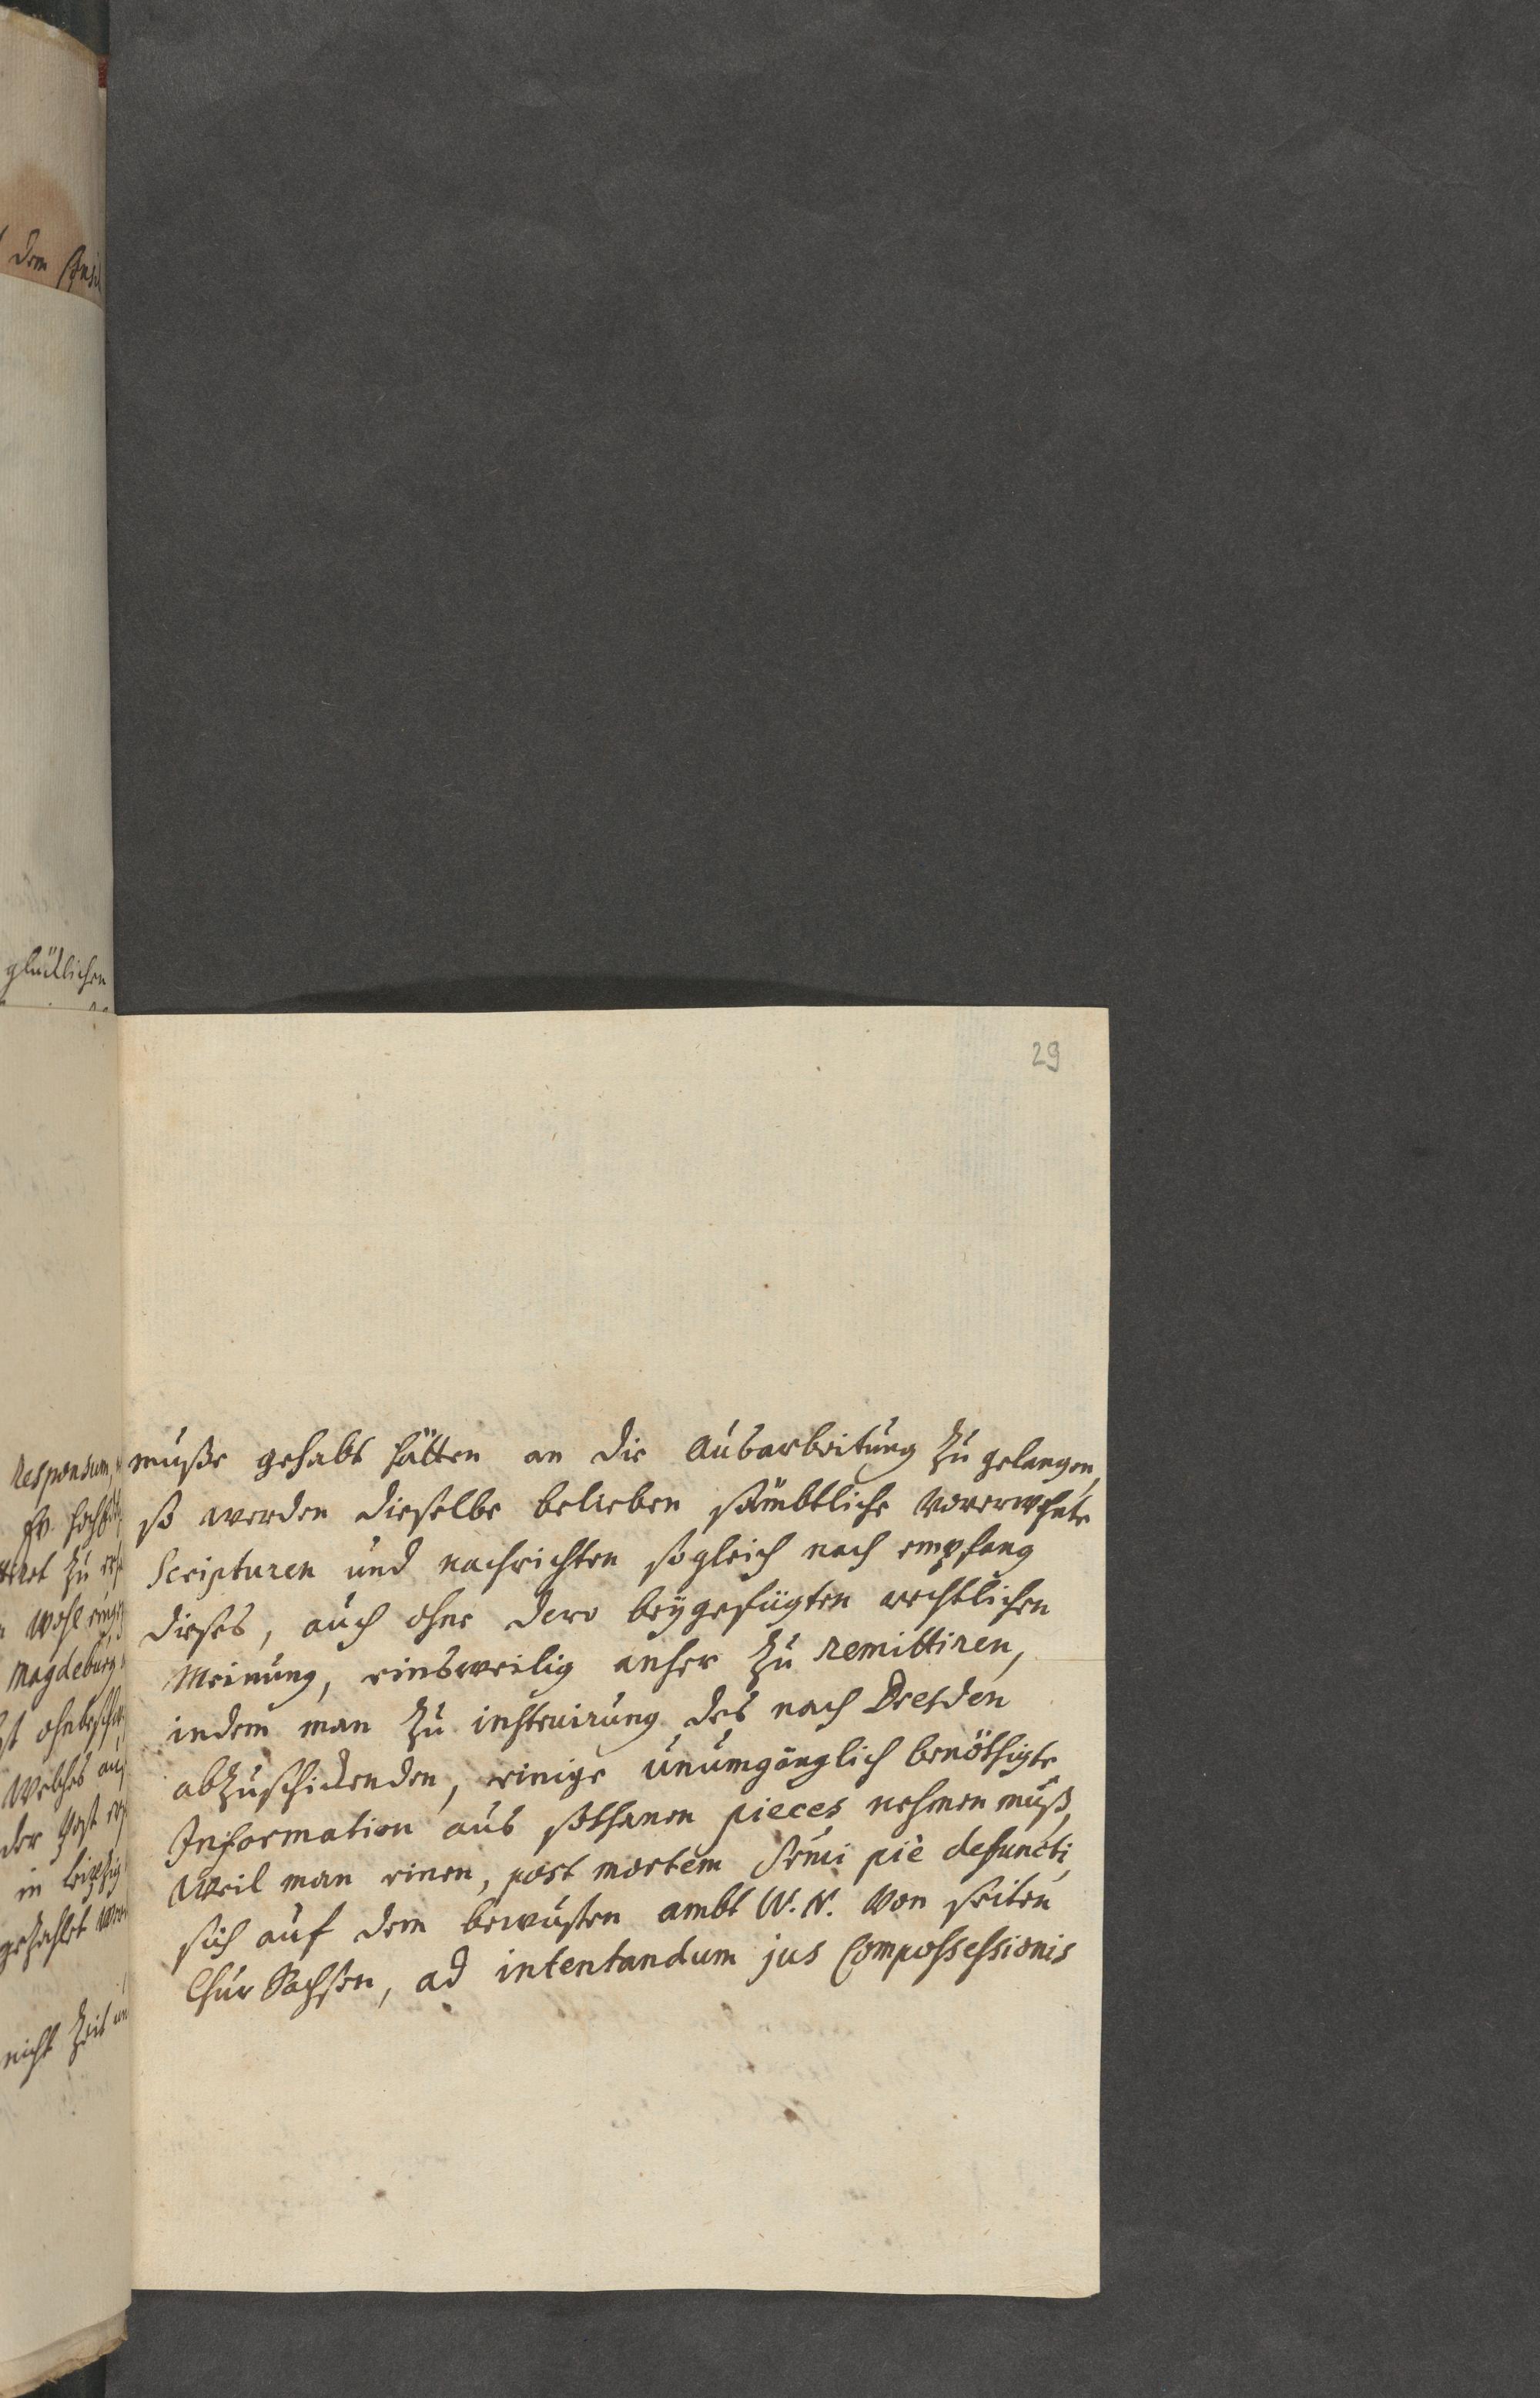 29
muße gehabt hätten an die Ausarbeitung zu gelangen,
so werden dieselbe belieben sämbtliche vorerwehnte
Scripturen und nachrichten sogleich nach empfang
dieses, auch ohne dero beÿgefügten rechtlichen
Meinung, einsweilig anher zu remittiren,
indem man zu instruirung des nach Dresden
abzuschickenden, einige unumgänglich benöthigte
Information aus sothanen pieces nehmen muß,
Weil man einen, post mortem Srmi piè defuncti,
sich auf dem bewusten ambt W. N. von seiten
Chur Sachsen, ad intentandum jus Compossessionis
dem
glücklichen
Responsum,
zu
Wohl
Magdeburg
Welches
der Post
in Leipzig
gezahlet
nicht Zeit